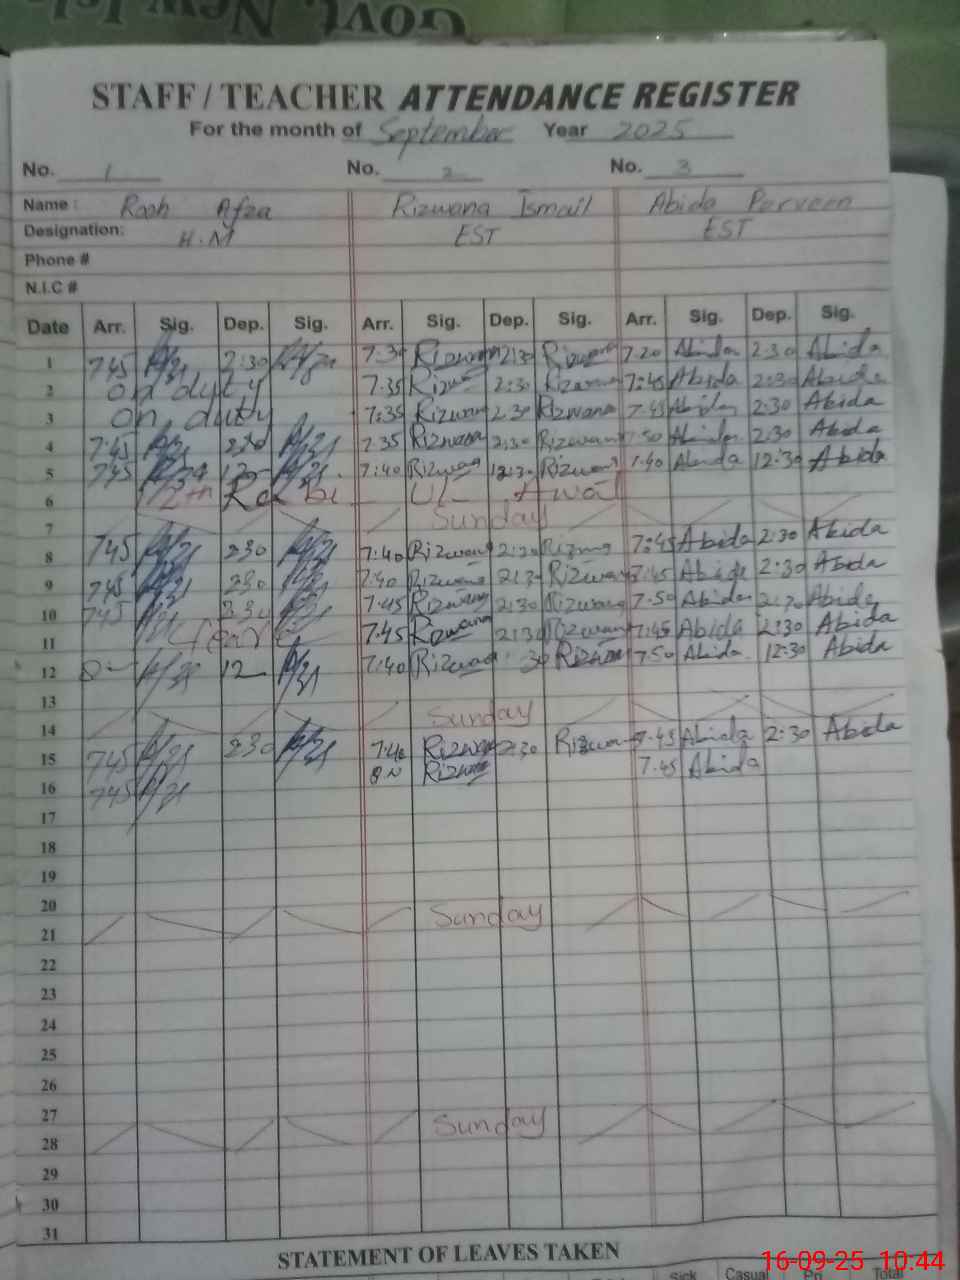 Govt. New Isl
STAFF / TEACHER ATTENDANCE REGISTER
For the month of September Year 2025
No. 1 No. 2 No. 3
Name : Rooh Afza Rizwana Ismail Abida Parveen
Designation: H.M EST EST
Phone #
N.I.C #
Date Arr. Sig. Dep. Sig. Arr. Sig. Dep. Sig. Arr. Sig. Dep. Sig.
1 745 2:30 7:3 Rizwana 2:30 Rizwana 7.20 Abida 2:30 Abida
2 on duty 7.35 Rizwana 2:30 Rizwana 7:45 Abida 2:30 Abida
3 on duty 7:35 Rizwana 2.30 Rizwana 7.45 Abida 2:30 Abida
4 7:45 230 7.35 Rizwana 2:30 Rizwana 7.50 Abida 2:30 Abida
5 745 12 7:40 Rizwana 12:30 Rizwana 7.40 Abida 12:30 Abida
6 12th Rabi UL Awal
7 Sunday
8 745 230 7:40 Rizwana 2:30 Rizwana 7:45 Abida 2:30 Abida
9 745 230 7:40 Rizwana 2:3 Rizwana 7:45 Abida 2:30 Abida
10 745 230 7:45 Rizwana 2:30 Rizwana 7.50 Abida 2:30 Abida
11 leave 7.45 Rizwana 2:30 Rizwana 7:45 Abida 2:30 Abida
12 12 7:40 Rizwana 30 Rizwana 7.50 Abida 12:30 Abida
13
14 Sunday
15 745 230 7:40 Rizwana 2:30 Rizwana 7.45 Abida 2:30 Abida
16 745 Rizwana 7.45 Abida
17
18
19
20
21 Sunday
22
23
24
25
26
27
28 Sunday
29
30
31
STATEMENT OF LEAVES TAKEN
Sick Casual Total
16-09-25 10:44